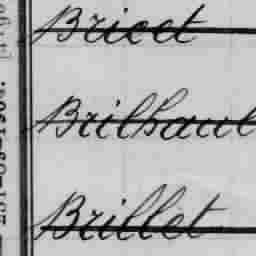 Bricet
Brilhault
Brillet